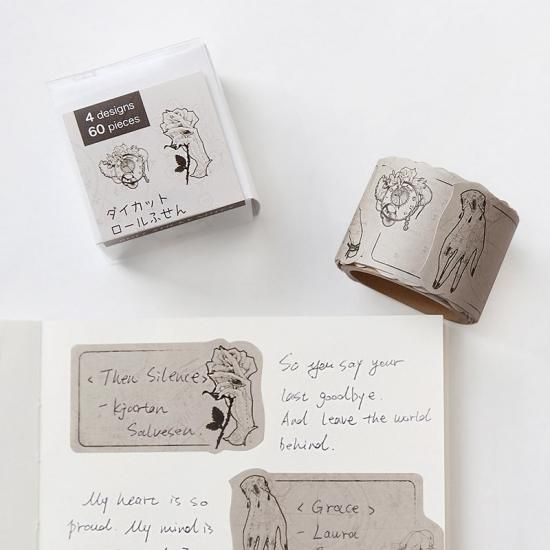 4 designs
60 pieces
ダイカット
ロールふせん
<Then Silence>
- Kjartan
Salvesen.
So you say your
last goodbye.
And leave the world
behind.
My heart is so
proud. My mind is
<Grace>
- Laura